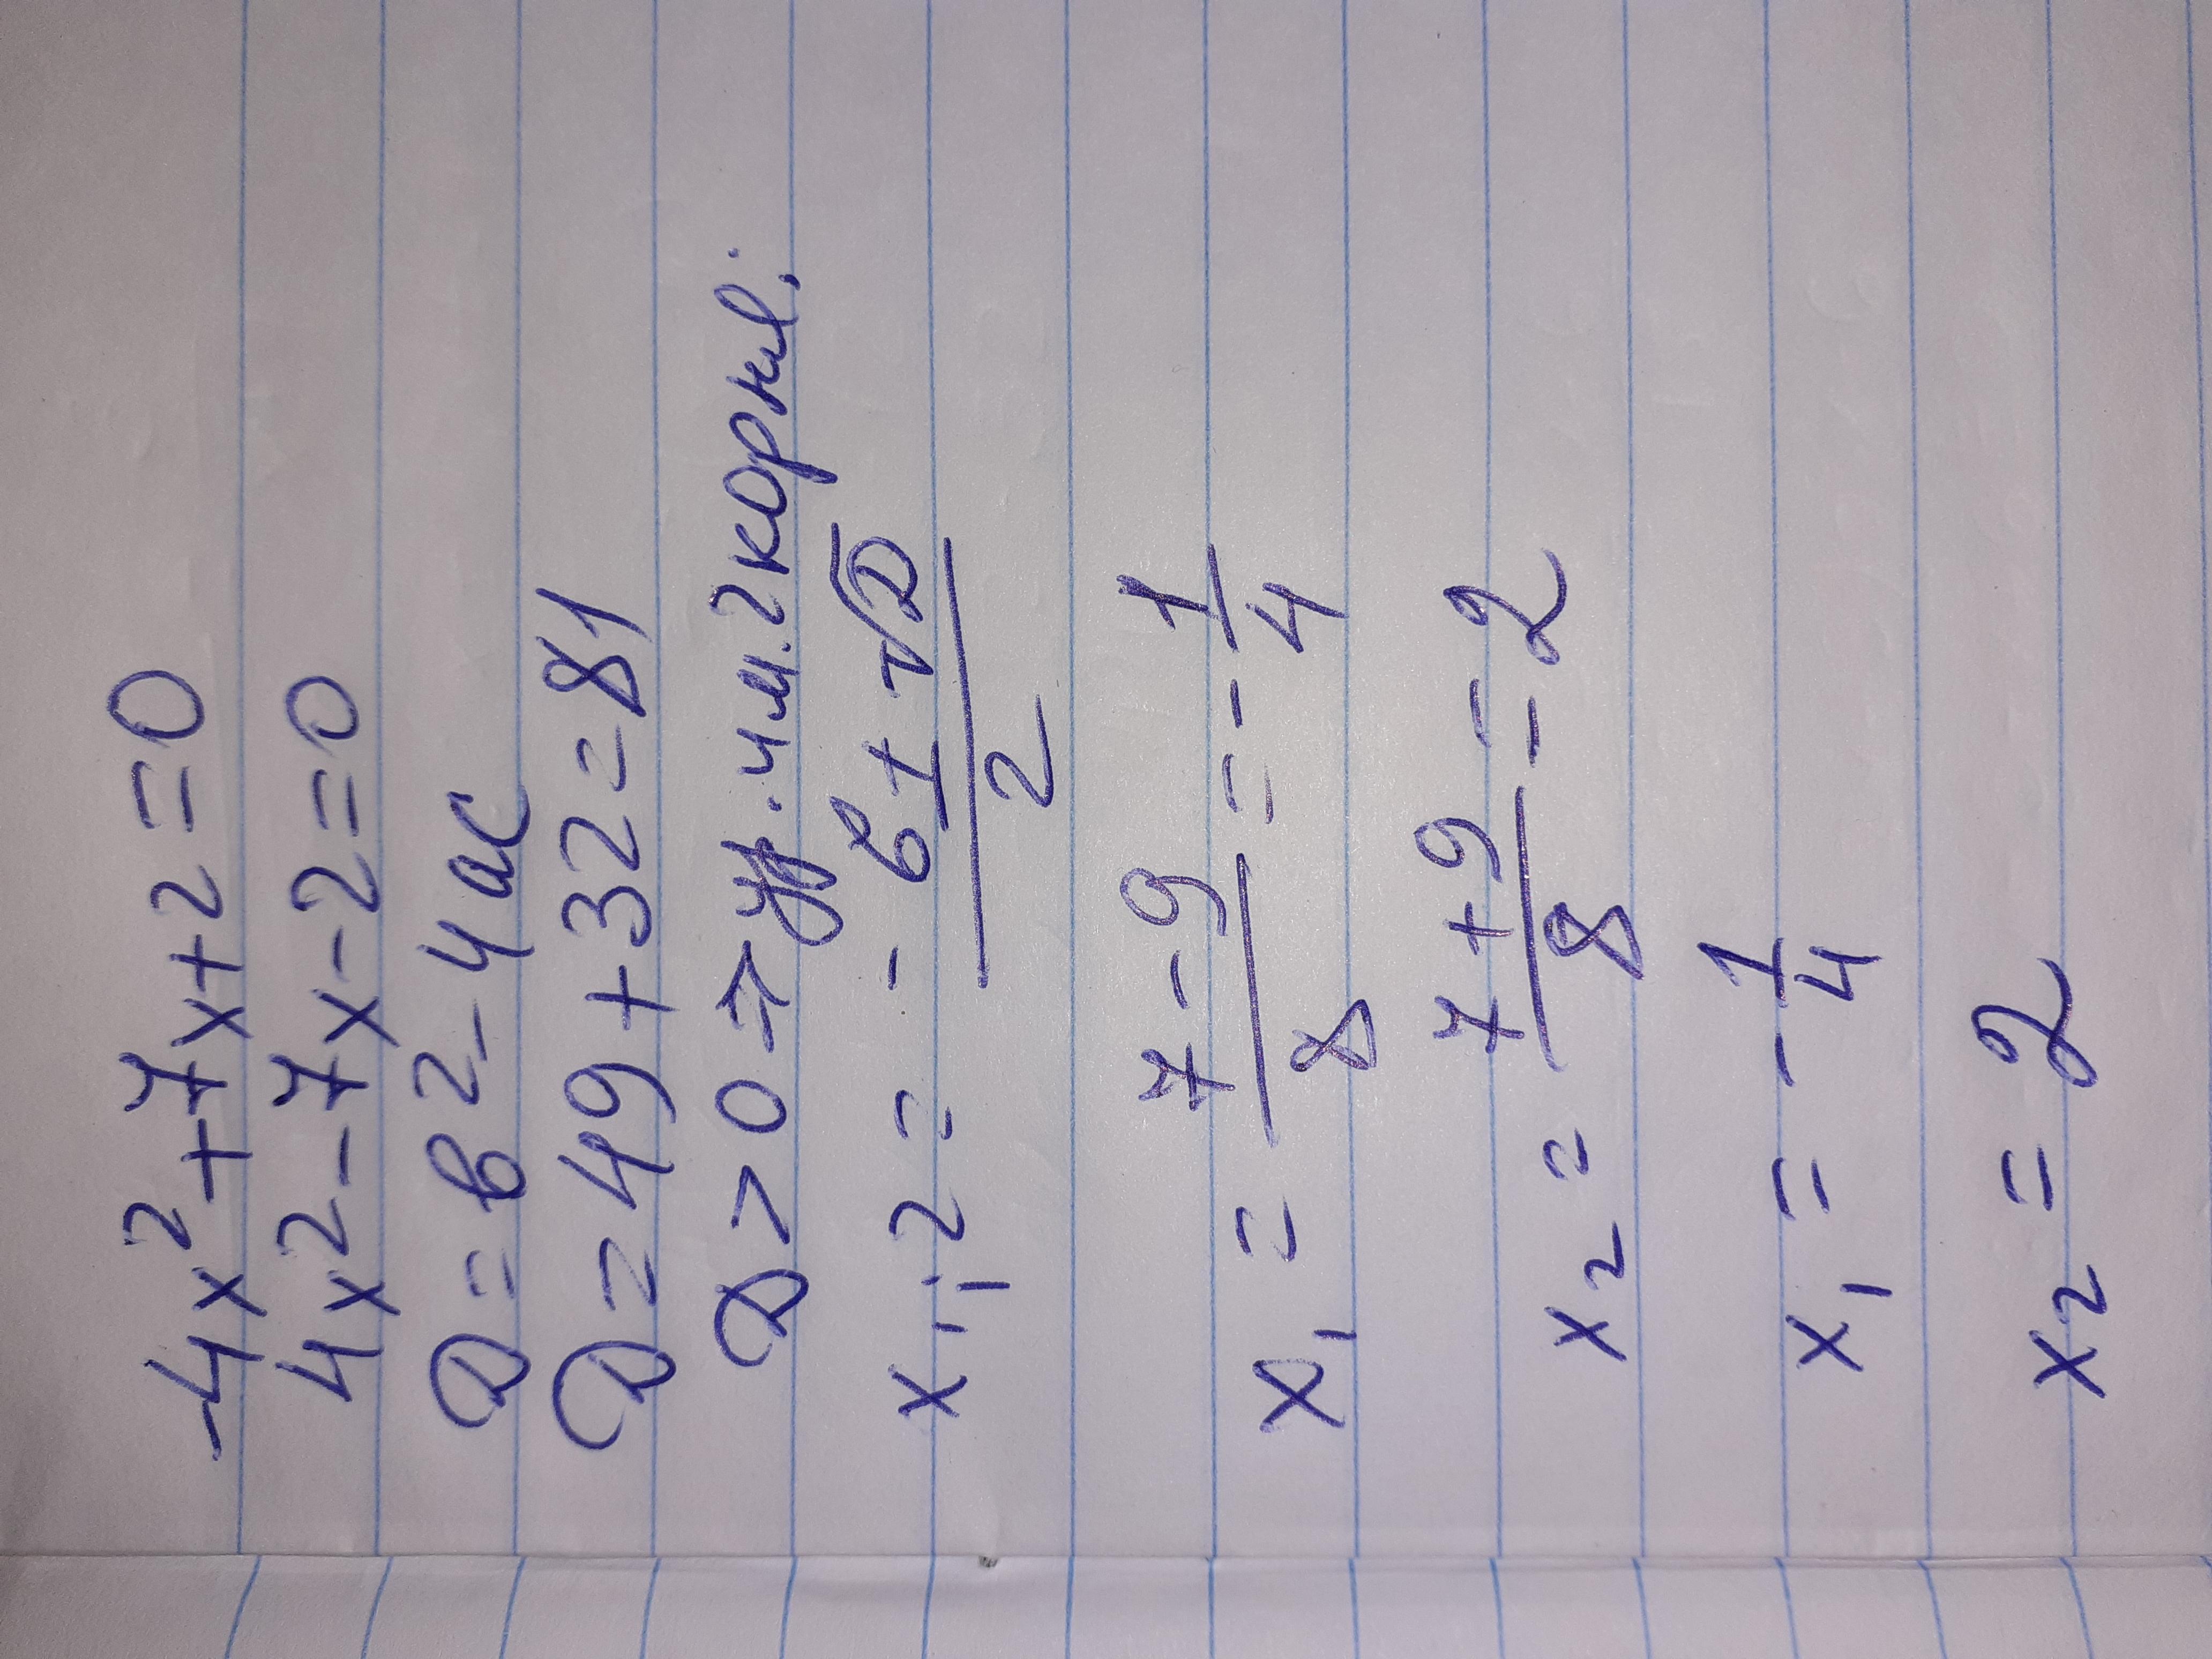 -4x²+7x+2=0
4x²-7x-2=0
D=в2-4ac
D=49+32=81
D>0⇒ур.им.2корня:
x₁,₂ = -в±√D / 2
x₁ = 7-9 / 8 = -1/4
x₂ = 7+9 / 8 = 2
x₁ = -1/4
x₂ = 2